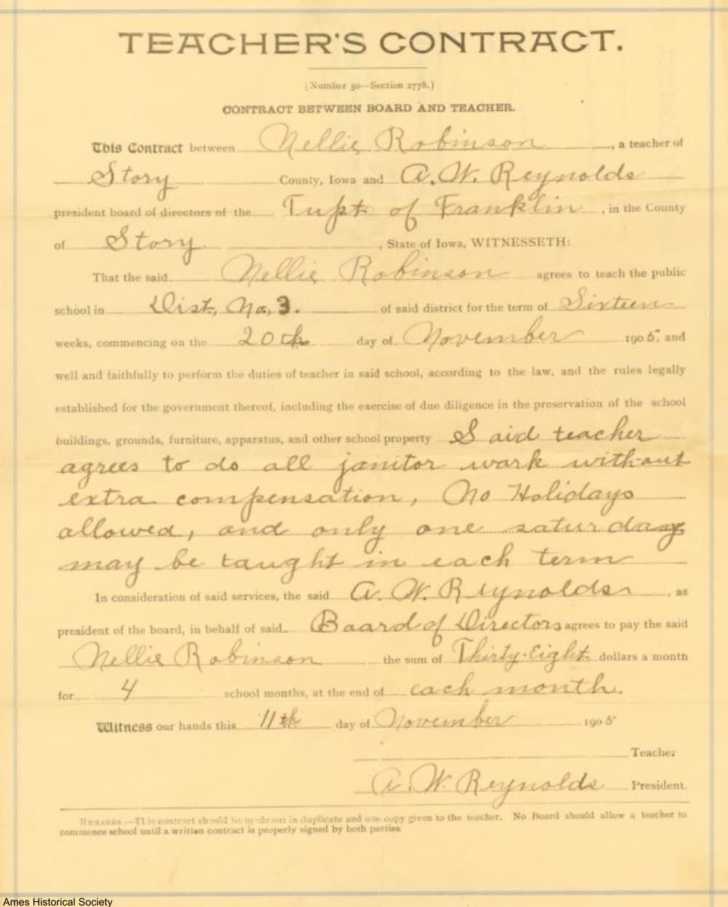 TEACHER'S CONTRACT.
(Number 30—Section 2778.)
CONTRACT BETWEEN BOARD AND TEACHER.
This Contract between Nellie Robinson, a teacher of
Story County, Iowa and A. W. Reynolds
president board of directors of the Twpt of Franklin, in the County
of Story, State of Iowa, WITNESSETH:
That the said Nellie Robinson agrees to teach the public
school in Dist, No, 3. of said district for the term of Sixteen
weeks, commencing on the 20th day of November 1905 and
well and faithfully to perform the duties of teacher in said school, according to the law, and the rules legally
established for the government thereof, including the exercise of due diligence in the preservation of the school
buildings, grounds, furniture, apparatus, and other school property Said teacher
agrees to do all janitor work without
extra compensation, No Holidays
allowed, and only one saturday
may be taught in each term
In consideration of said services, the said A. W. Reynolds, as
president of the board, in behalf of said Board of Directors agrees to pay the said
Nellie Robinson the sum of Thirty-Eight dollars a month
for 4 school months, at the end of each month.
Witness our hands this 11th day of November 1905
Teacher
A. W. Reynolds President.
REMARKS.—This contract should be made out in duplicate and one copy given to the teacher. No Board should allow a teacher to
commence school until a written contract is properly signed by both parties
Ames Historical Society